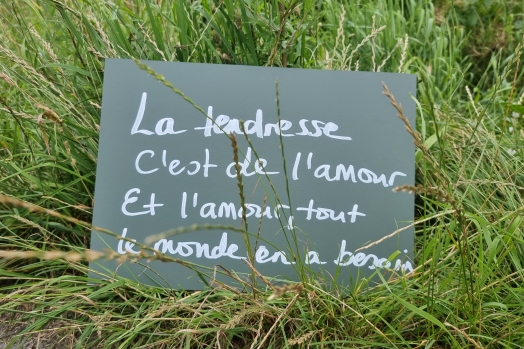 La tendresse
C'est de l'amour
Et l'amour, tout
le monde en a besoin